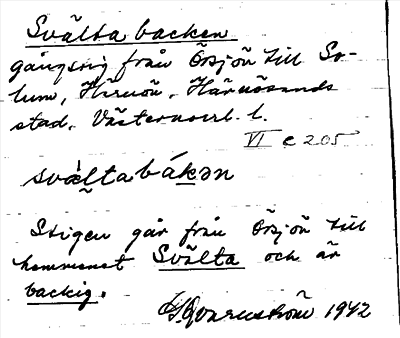 Svälta backen
gångstig från Örsjön till So-
lum, Härnön, Härnösands
stad, Västernorrl. l.
VI c 205
svältabákən
Stigen går från Örsjön till
hemmanet Svälta och är
backig.
G. Qvarnström 1942